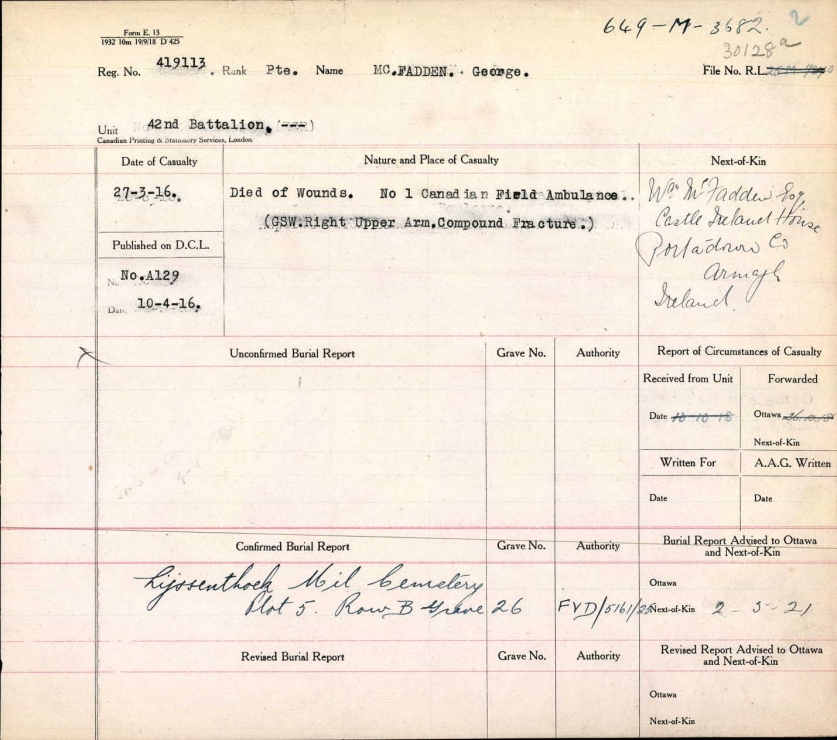 Form E. 13
1932 10m 19/9/18 D 425
649-M-3682. 2
30128a
Reg. No. 419113. Rank Pte. Name MC.FADDEN. George.
File No. R.L.
Unit 42nd Battalion, (---)
Canadian Printing & Stationery Services, London
Date of Casualty
Nature and Place of Casualty
Next-of-Kin
27-3-16.
Died of Wounds. No 1 Canadian Field Ambulance..
(GSW.Right Upper Arm.Compound Fracture.)
Wm McFadden Esq
Castle Ireland House
Portadown Co
Armagh
Ireland.
Published on D.C.L.
No.A129
Date 10-4-16.
Unconfirmed Burial Report
Grave No.
Authority
Report of Circumstances of Casualty
Received from Unit
Forwarded
Date 10-10-18
Ottawa
Next-of-Kin
Written For
A.A.G. Written
Date
Date
Confirmed Burial Report
Grave No.
Authority
Burial Report Advised to Ottawa
and Next-of-Kin
Lijssenthoek Mil Cemetery
Plot 5. Row B Grave 26
FYD/5161/25
Ottawa
Next-of-Kin 2-5-21
Revised Burial Report
Grave No.
Authority
Revised Report Advised to Ottawa
and Next-of-Kin
Ottawa
Next-of-Kin